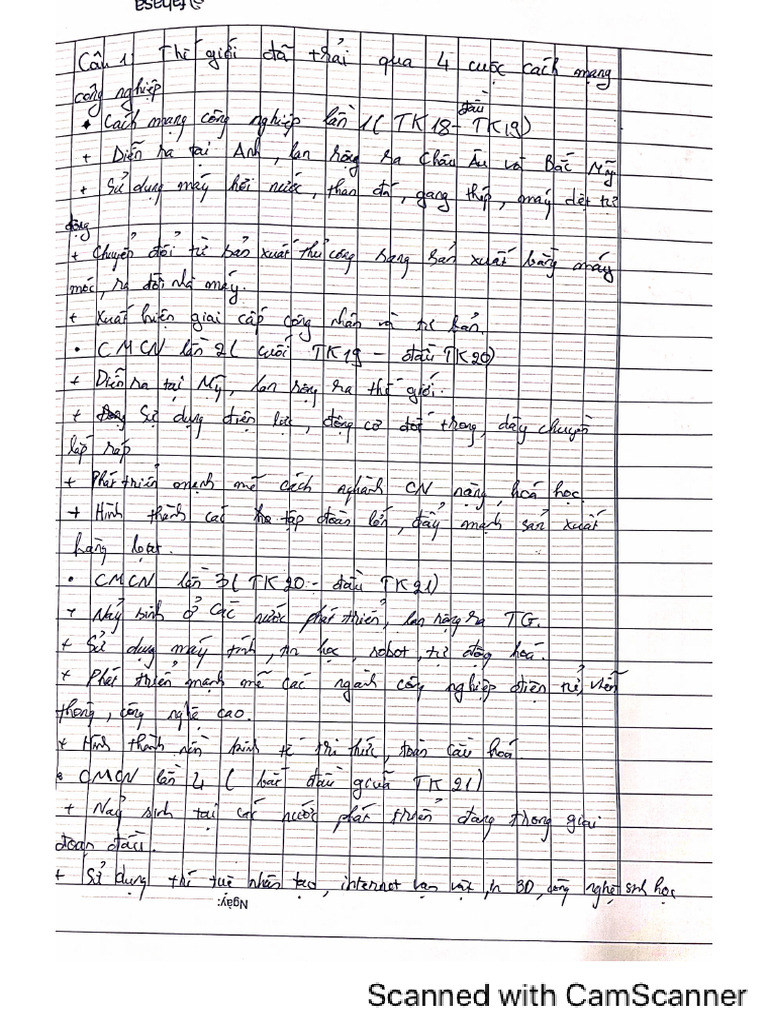 Câu 1: Thế giới đã trải qua 4 cuộc cách mạng
công nghiệp
• Cách mạng công nghiệp lần 1 (TK18 - đầu TK19)
+ Diễn ra tại Anh, lan rộng ra Châu Âu và Bắc Mỹ
+ Sử dụng máy hơi nước, than đá, gang thép, máy dệt tự
động
+ Chuyển đổi từ sản xuất thủ công sang sản xuất bằng máy
móc, ra đời nhà máy.
+ Xuất hiện giai cấp công nhân và tư bản.
• CMCN lần 2 (cuối TK19 - đầu TK20)
+ Diễn ra tại Mỹ, lan rộng ra thế giới.
+ Sử dụng điện lực, động cơ đốt trong, dây chuyền
lắp ráp
+ Phát triển mạnh mẽ cách nghành CN nặng, hoá học.
+ Hình thành các tập đoàn lớn, đẩy mạnh sản xuất
hàng loạt.
• CMCN lần 3 (TK20 - đầu TK21)
+ Nảy sinh ở các nước phát triển, lan rộng ra TG.
+ Sử dụng máy tính, tin học, robot, tự động hoá.
+ Phát triển mạnh mẽ các ngành công nghiệp điện tử, viễn
thông, công nghệ cao.
+ Hình thành nền kinh tế tri thức, toàn cầu hoá.
• CMCN lần 4 (bắt đầu giữa TK21)
+ Nảy sinh tại các nước phát triển đang trong giai
đoạn đầu.
+ Sử dụng trí tuệ nhân tạo, internet vạn vật, in 3D, công nghệ sinh học
Ngày:
Scanned with CamScanner